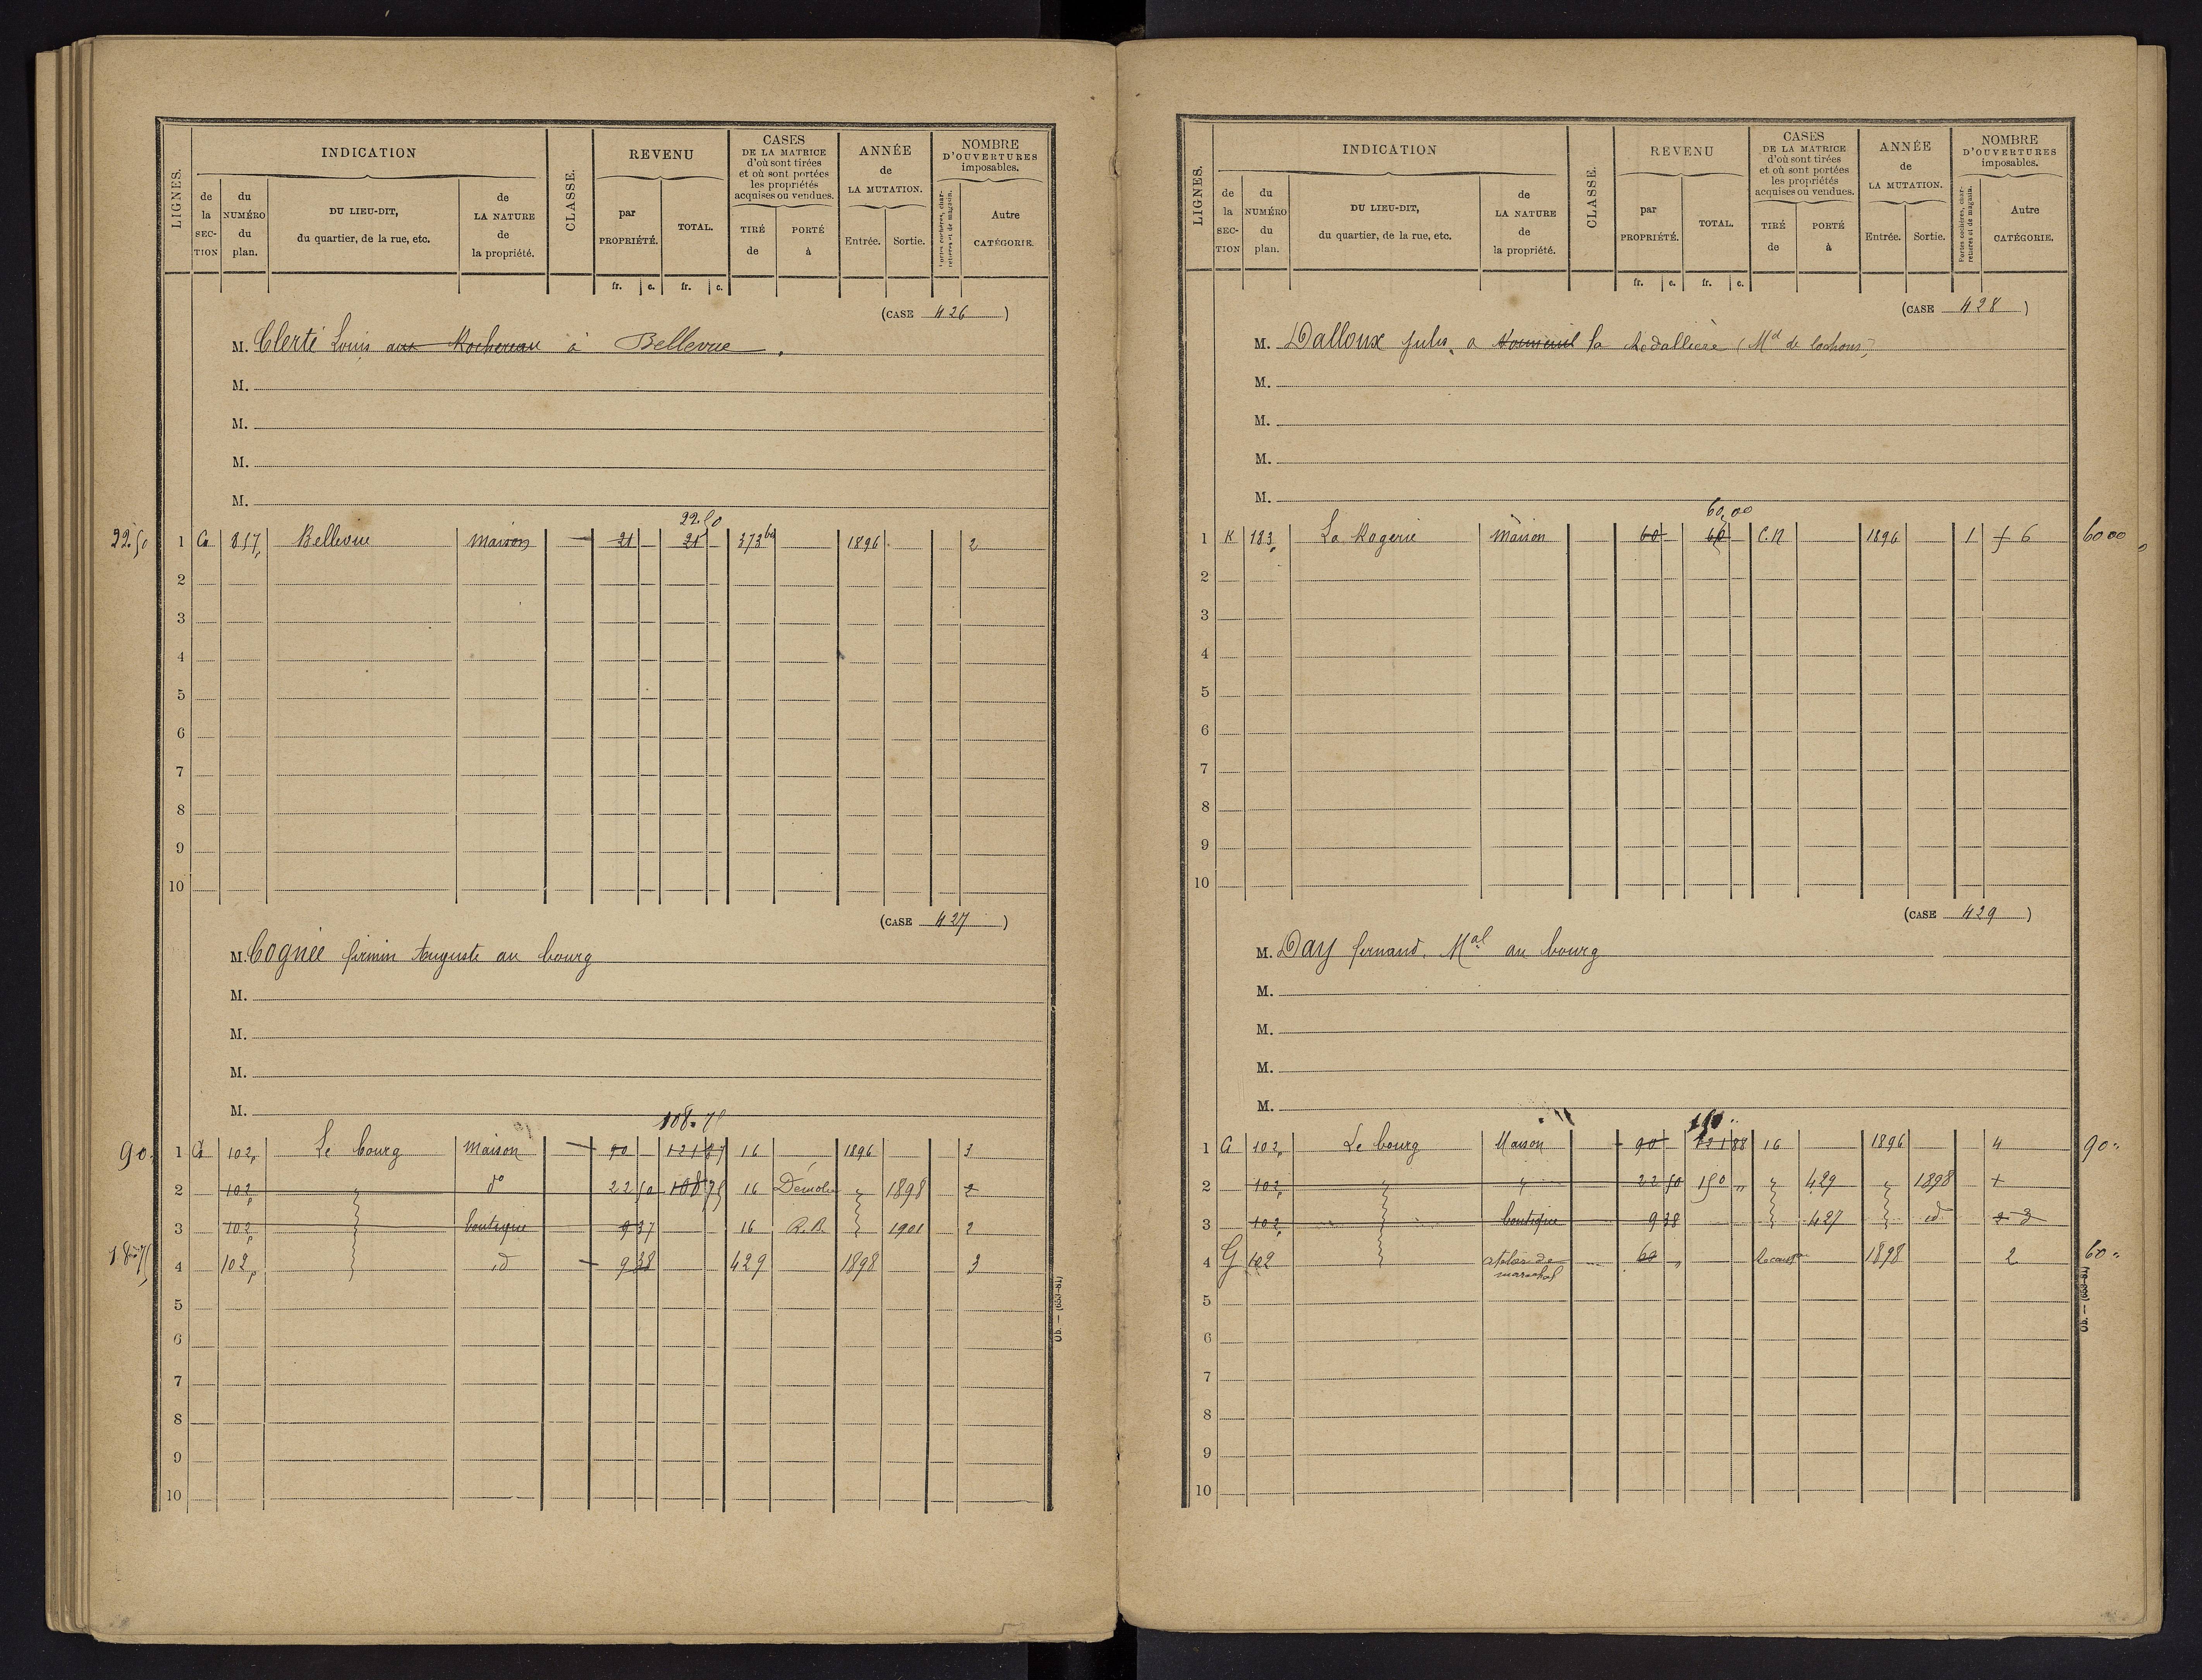 LIGNES.
INDICATION
de la SECTION
du NUMÉRO du plan.
DU LIEU-DIT, du quartier, de la rue, etc.
de LA NATURE de la propriété.
CLASSE.
REVENU
par PROPRIÉTÉ.
TOTAL.
fr. c. fr. c.
CASES DE LA MATRICE d'où sont tirées et où sont portées les propriétés acquises ou vendues.
TIRÉ de
PORTÉ à
ANNÉE de LA MUTATION.
Entrée. Sortie.
NOMBRE D'OUVERTURES imposables.
Portes cochères, charretières et de magasin.
Autre CATÉGORIE.
(CASE 426)
M. Clerté Louis aux Rochereau à Bellevue.
M.
M.
M.
M.
22.50
22.50 1 G 817p Bellevue maison 21 21 373 bis 1896 2
2
3
4
5
6
7
8
9
10
(CASE 427)
M. Cognée firmin Auguste au bourg
M.
M.
M.
M.
108.75
90. 1 G 102p Le bourg maison 90 121 87 16 1896 3
2 102p do 22 50 108 75 16 Démolie 1898 2
3 102p boutique 9 37 16 R.B. 1901 2
4 102p id 9 38 429 1898 3
5
6
7
8
9
10
Ob. — (653-81)
LIGNES.
INDICATION
de la SECTION
du NUMÉRO du plan.
DU LIEU-DIT, du quartier, de la rue, etc.
de LA NATURE de la propriété.
CLASSE.
REVENU
par PROPRIÉTÉ.
TOTAL.
fr. c. fr. c.
CASES DE LA MATRICE d'où sont tirées et où sont portées les propriétés acquises ou vendues.
TIRÉ de
PORTÉ à
ANNÉE de LA MUTATION.
Entrée. Sortie.
NOMBRE D'OUVERTURES imposables.
Portes cochères, charretières et de magasin.
Autre CATÉGORIE.
(CASE 428)
M. Dalloux Jules, a la (Md de cochons)
M.
M.
M.
M.
60,00
1 K 183p La Rogerie Maison 60 60 C.N 1896 1 6 60 00
2
3
4
5
6
7
8
9
10
(CASE 429)
M. Day fernand, Mal au bourg
M.
M.
M.
M.
150 "
1 G 102p Le bourg Maison 90 121 88 16 1896 4 90 "
2 102p " " 22 50 150 " " 429 " 1898 1
3 102p boutique 9 38 427 id 2 3
4 G 102 atelier de maréchal 60 " 1898 2 60 "
5
6
7
8
9
10
Ob. — (653-81)